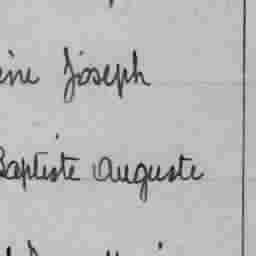 ine Joseph
Baptiste Auguste